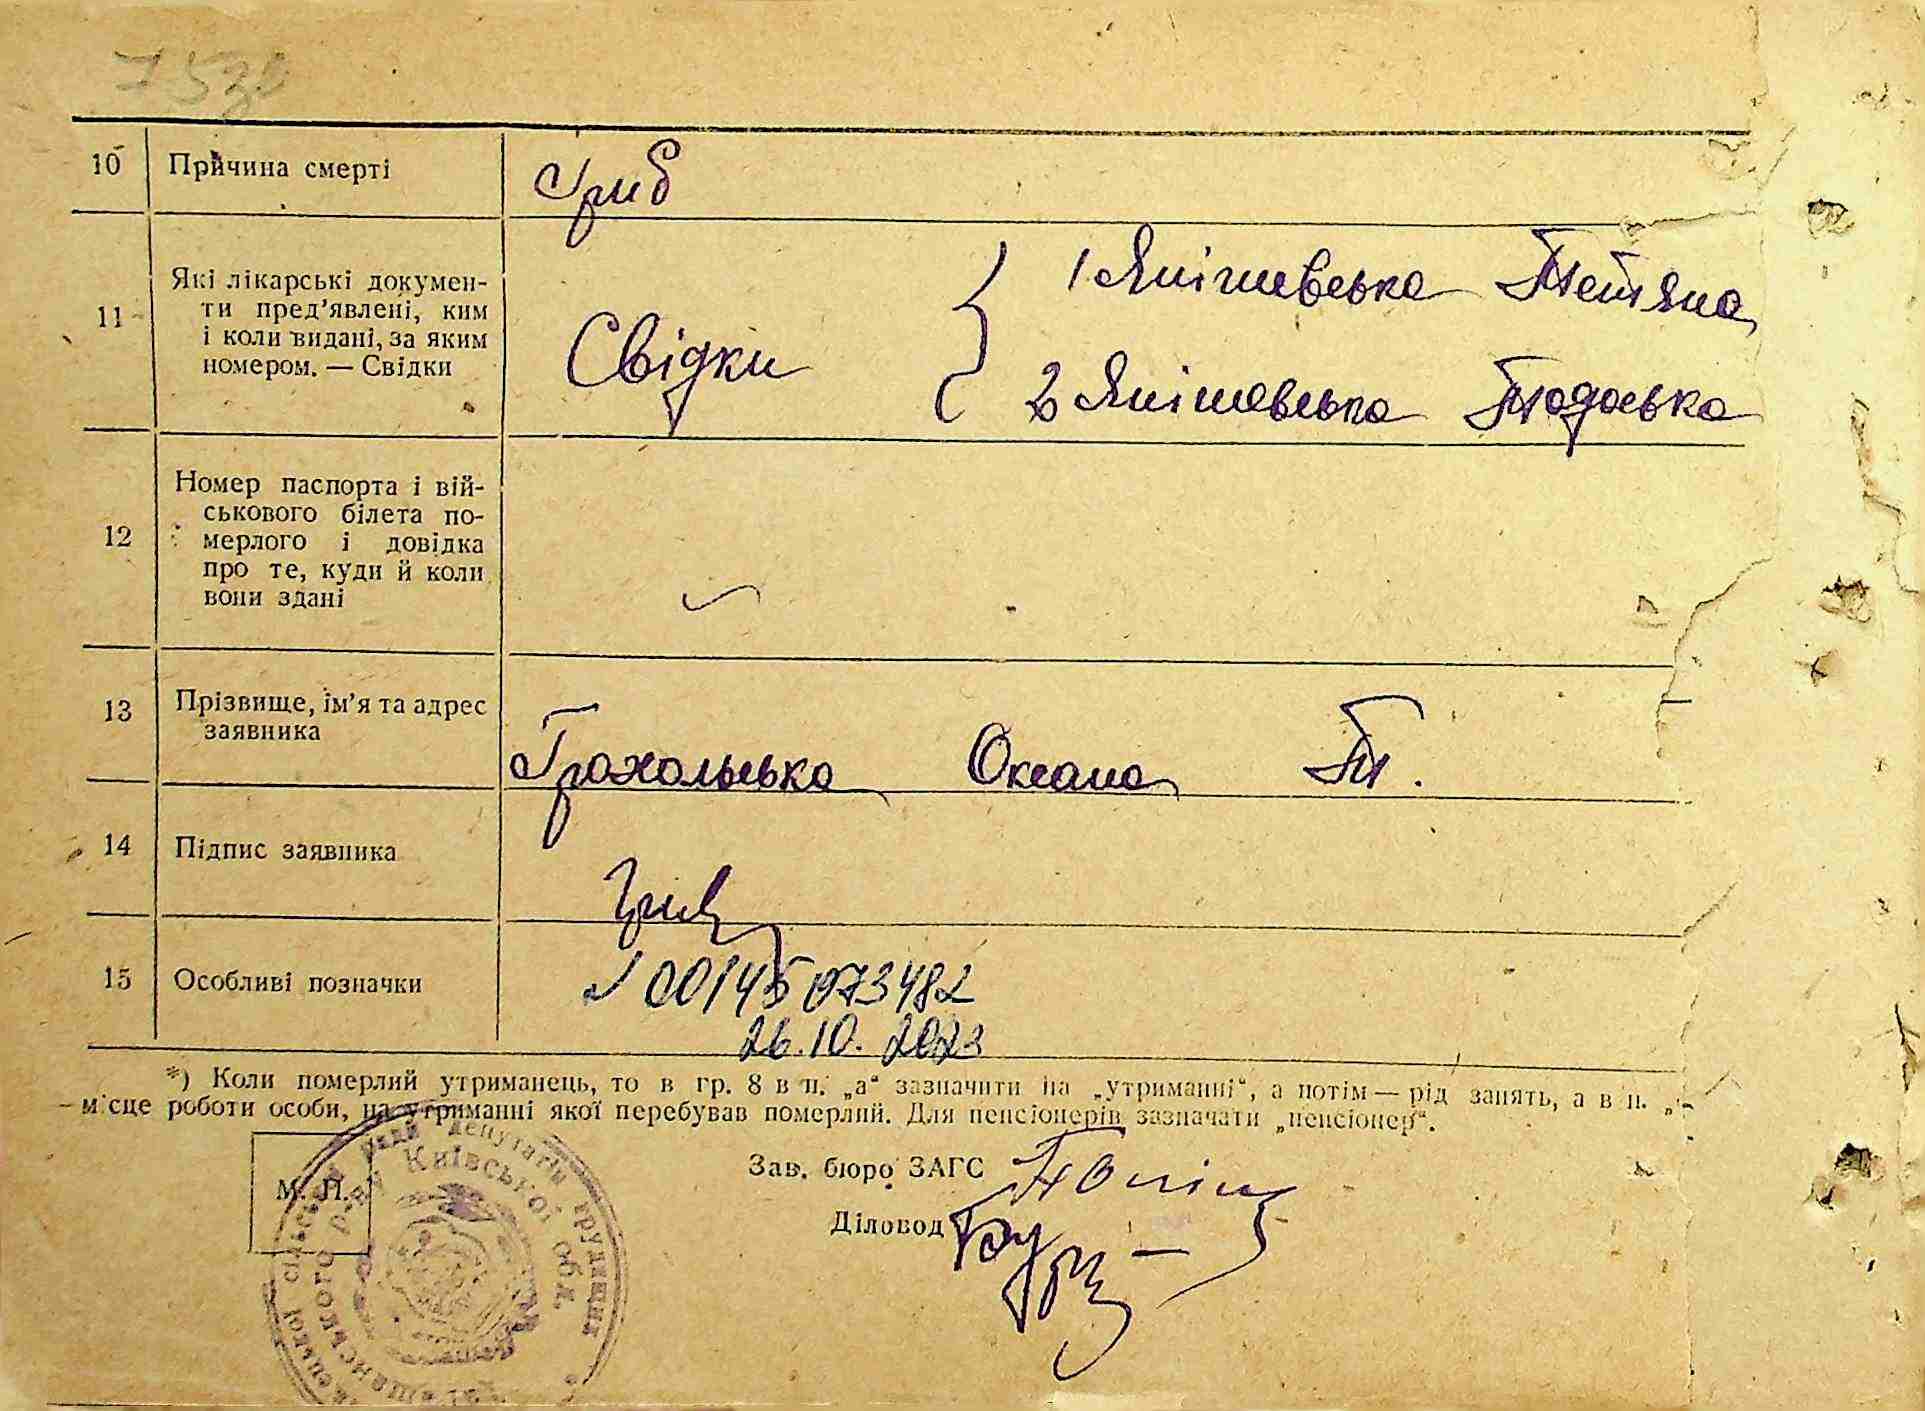 10 Причина смерті Гриб
11 Які лікарські докумен-
ти пред’явлені, ким
і коли видані, за яким
номером. — Свідки
Свідки
1 Янішевська Тетяна
2 Янішевська Тодоська
12 Номер паспорта і вій-
ськового білета по-
мерлого і довідка
про те, куди й коли
вони здані
13 Прізвище, ім’я та адрес
заявника
Грохольська Оксана Т.
14 Підпис заявника
15 Особливі позначки
00145073482
26.10.2023
*) Коли померлий утриманець, то в гр. 8 в п. „а“ зазначити на „утриманні“, а потім — рід занять, а в п.
місце роботи особи, на утриманні якої перебував померлий. Для пенсіонерів зазначати „пенсіонер“.
М. П.
Зав. бюро ЗАГС
Діловод
сільської ради депутатів трудящих
р-ну Київської обл.